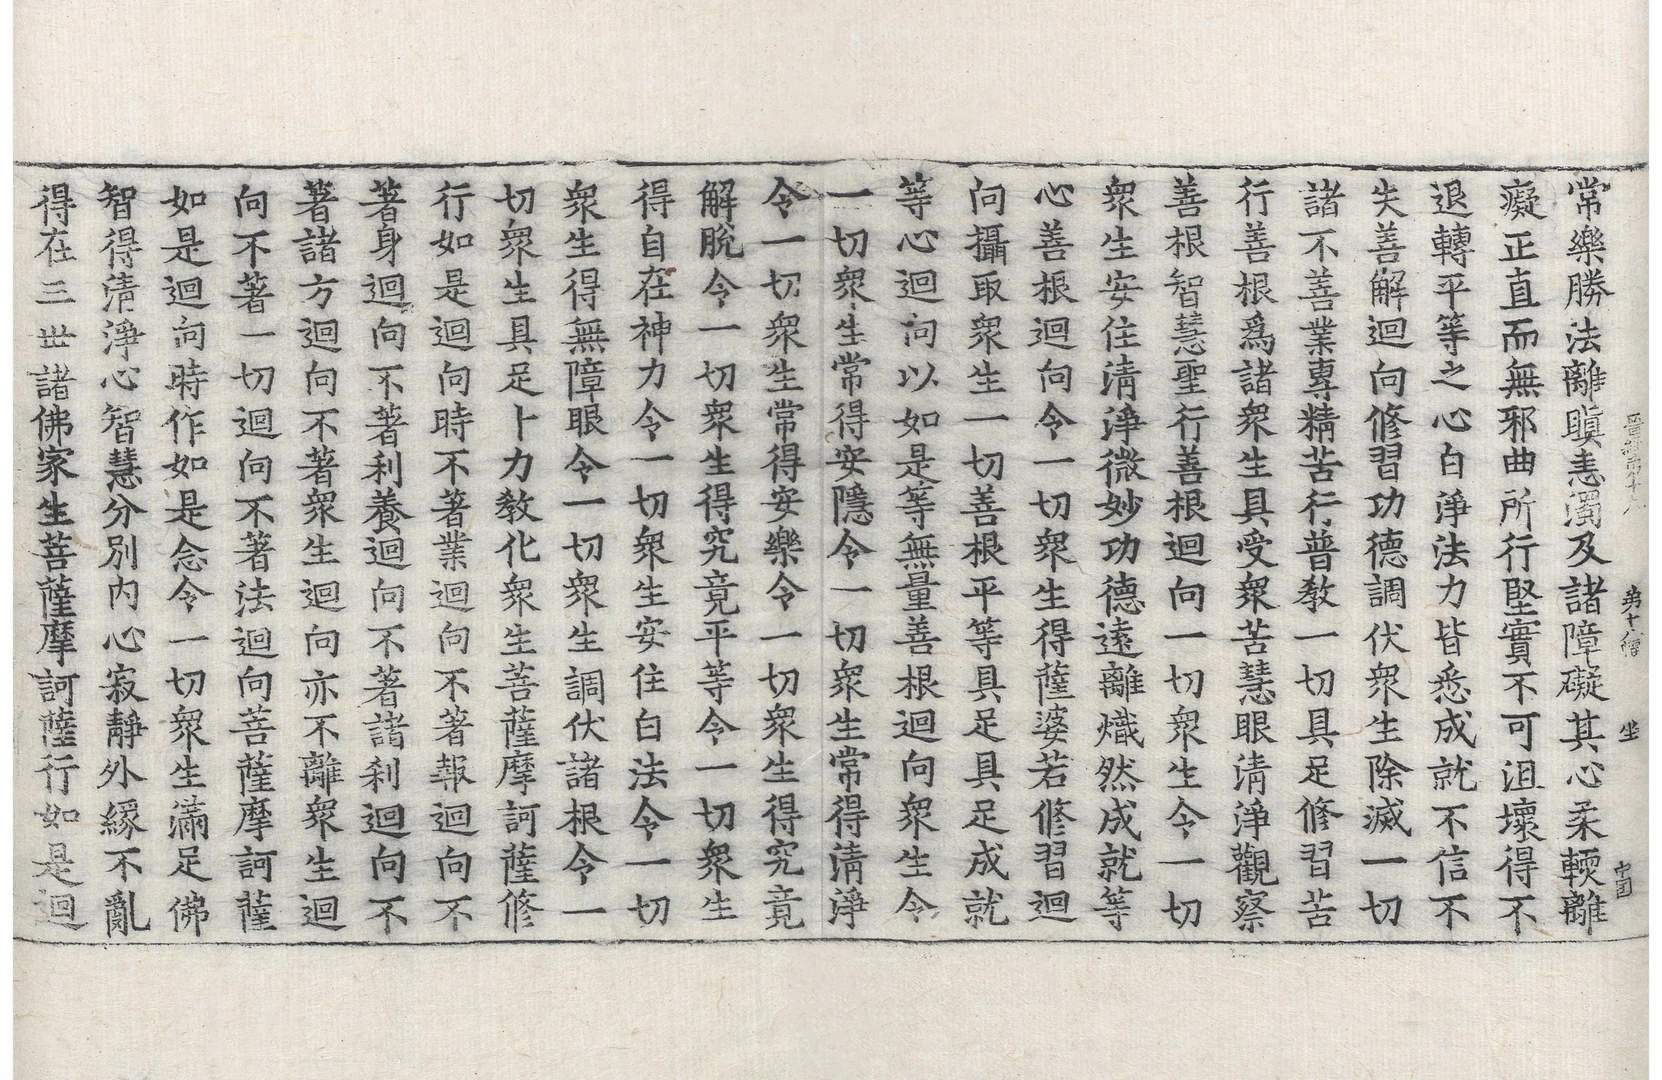 晉經
第十八
坐
中国
常樂勝法離瞋恚濁及諸障礙其心柔輭離
癡正直而無邪曲所行堅實不可沮壞得不
退轉平等之心白淨法力皆悉成就不信不
失善解迴向修習功德調伏衆生除滅一切
諸不善業專精苦行普教一切具足修習苦
行善根爲諸衆生具受衆苦慧眼清淨觀察
善根智慧聖行善根迴向一切衆生令一切
衆生安住清淨微妙功德遠離熾然成就等
心善根迴向令一切衆生得薩婆若修習迴
向攝取衆生一切善根平等具足具足成就
等心迴向以如是等無量善根迴向衆生令
一切衆生常得安隱令一切衆生常得清淨
令一切衆生常得安樂令一切衆生得究竟
解脫令一切衆生得究竟平等令一切衆生
得自在神力令一切衆生安住白法令一切
衆生得無障眼令一切衆生調伏諸根令一
切衆生具足十力教化衆生菩薩摩訶薩修
行如是迴向時不著業迴向不著報迴向不
著身迴向不著利養迴向不著諸刹迴向不
著諸方迴向不著衆生迴向亦不離衆生迴
向不著一切迴向不著法迴向菩薩摩訶薩
如是迴向時作如是念令一切衆生滿足佛
智得清淨心智慧分別內心寂靜外緣不亂
得在三世諸佛家生菩薩摩訶薩行如是迴